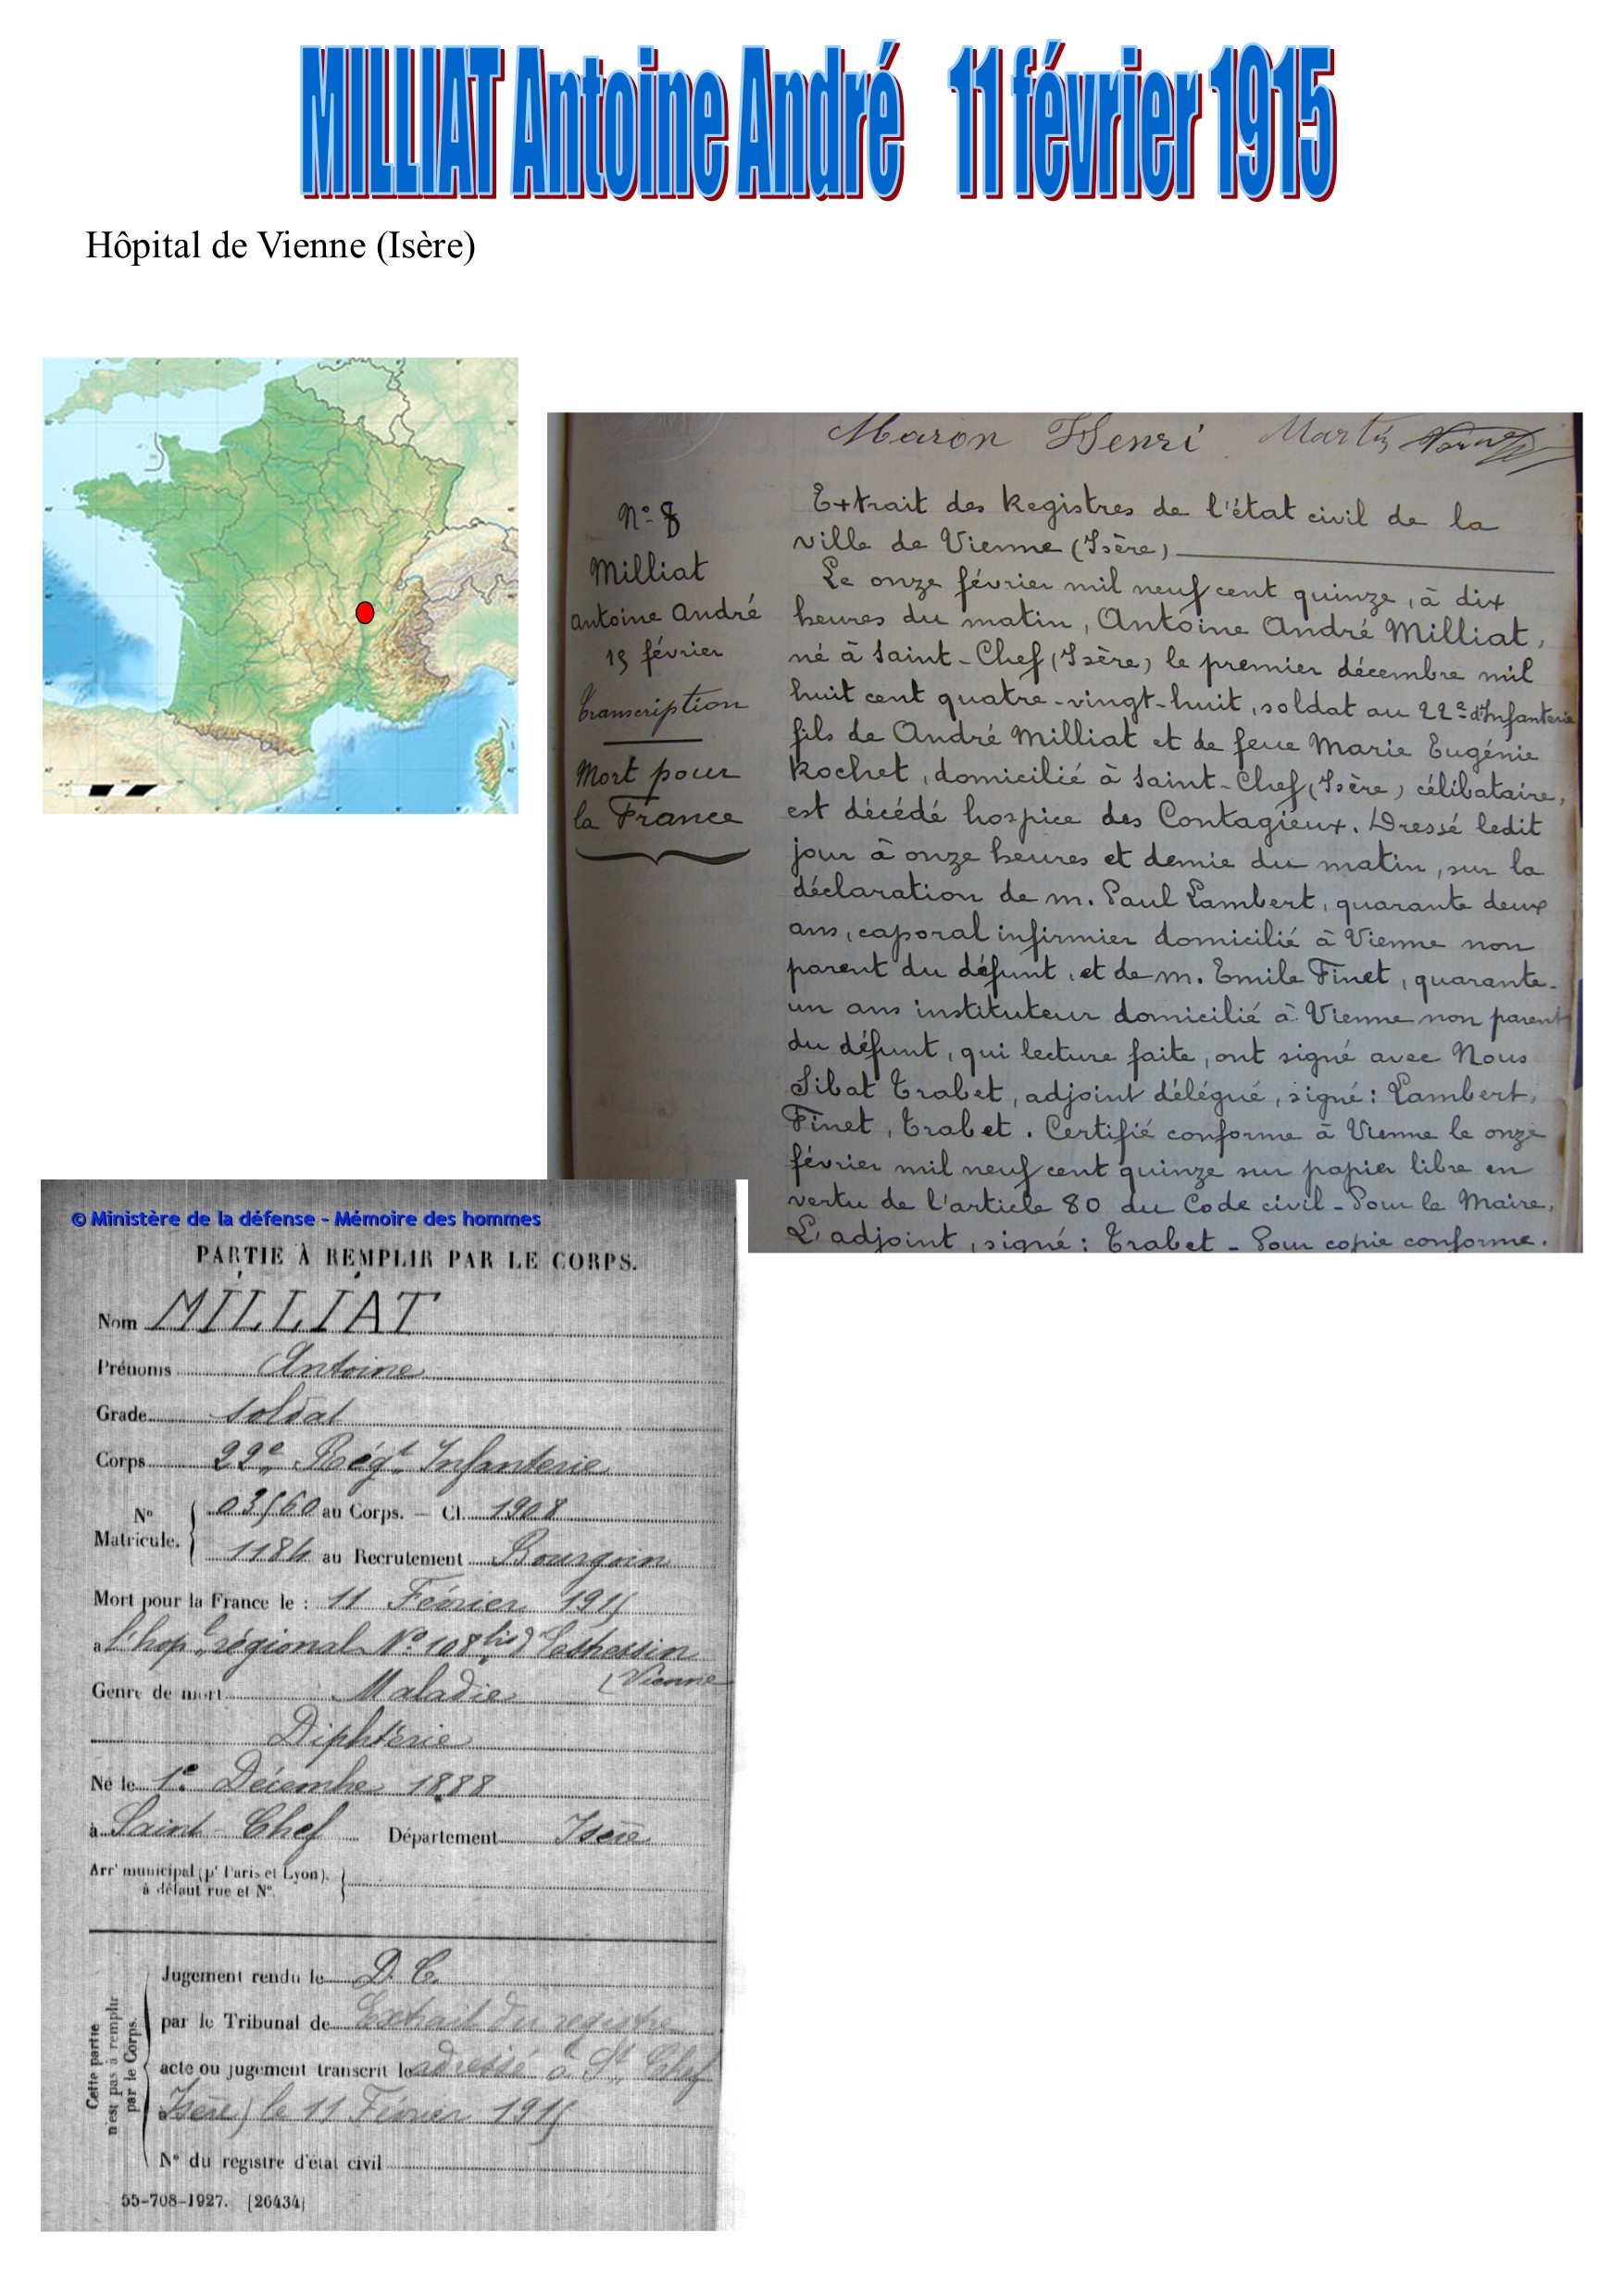 MILLIAT Antoine André 11 février 1915
Hôpital de Vienne (Isère)
Maron Henri Martin
N° 8
Milliat
Antoine André
15 février
Transcription
Mort pour
la France
Extrait des Registres de l'état civil de la
ville de Vienne (Isère)
Le onze février mil neuf cent quinze, à dix
heures du matin, Antoine André Milliat,
né à Saint-Chef (Isère) le premier décembre mil
huit cent quatre-vingt-huit, soldat au 22e d'Infanterie
fils de André Milliat et de feue Marie Eugénie
Rochet, domicilié à Saint-Chef (Isère) célibataire,
est décédé hospice des Contagieux. Dressé ledit
jour à onze heures et demie du matin, sur la
déclaration de m. Paul Lambert, quarante deux
ans, caporal infirmier domicilié à Vienne non
parent du défunt, et de m. Emile Finet, quarante-
un ans instituteur domicilié à Vienne non parent
du défunt, qui lecture faite, ont signé avec Nous
Sibat Trabet, adjoint délégué, signé : Lambert,
Finet, Trabet. Certifié conforme à Vienne le onze
février mil neuf cent quinze sur papier libre en
vertu de l'article 80 du Code civil - Pour le Maire,
L'adjoint, signé : Trabet - Pour copie conforme.
© Ministère de la défense - Mémoire des hommes
PARTIE À REMPLIR PAR LE CORPS.
Nom MILLIAT
Prénoms Antoine
Grade soldat
Corps 22e Régt Infanterie
N° Matricule. { 03560 au Corps. — Cl. 1908
1184 au Recrutement Bourgoin
Mort pour la France le : 11 Février 1915
a l'hopl régional N° 108 bis
(Vienne
Genre de mort Maladie
Diphterie
Né le 1e Décembre 1888
à Saint-Chef Département Isère
Arrt municipal (pr Paris et Lyon),
à défaut rue et N°.
Cette partie
n'est pas à remplir
par le Corps.
Jugement rendu le D. C.
par le Tribunal de Extrait du registre
acte ou jugement transcrit le adressé à St Chef
à Isère) le 11 Février 1915
N° du registre d'état civil
55-708-1927. [26434]